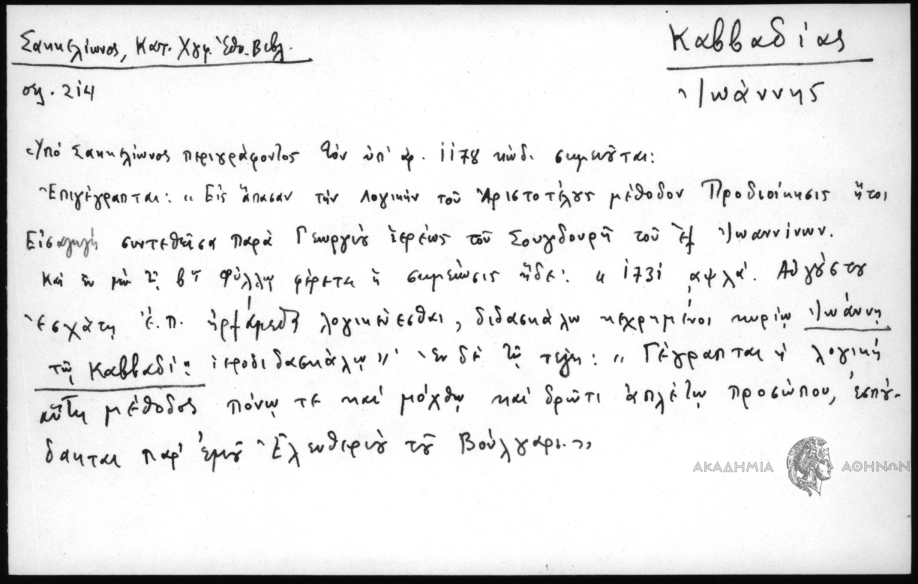 Σακκελίωνος, Κατ. Χγφ. Ἐθν. Βιβλ.
Καββαδίας
Ἰωάννης
σελ. 214
«Ὑπό Σακκελίωνος περιγράφοντος τόν ὑπ' ἀρ. 1178 κώδ. σημειοῦται:
Ἐπιγέγραπται: «Εἰς ἅπασαν τήν λογικήν τοῦ Ἀριστοτέλους μέθοδον Προδιοίκησις ἤτοι
Εἰσαγωγή συντεθεῖσα παρά Γεωργίου ἱερέως τοῦ Σουγδουρῆ τοῦ ἐξ Ἰωαννίνων.
Καί ἐν μέν τῷ βῳ φύλλῳ φέρεται ἡ σημείωσις ἥδε: «1731 αψλά. Αὐγούστου
ἐσχάτῃ ἐ.π. ἠρξάμεθα λογικεύεσθαι, διδασκάλῳ κεχρημένοι κυρίῳ Ἰωάννῃ
τῷ Καββαδίᾳ ἱεροδιδασκάλῳ»· ἐν δέ τῷ τέλει: «Γέγραπται ἡ λογική
αὕτη μέθοδος πόνῳ τε καί μόχθῳ καί ἱδρῶτι ἀπλέτῳ προσώπου, ἐσπού-
δακται παρ' ἐμοῦ Ἐλευθερίου τοῦ Βούλγαρι.»
ΑΚΑΔΗΜΙΑ ΑΘΗΝΩΝ